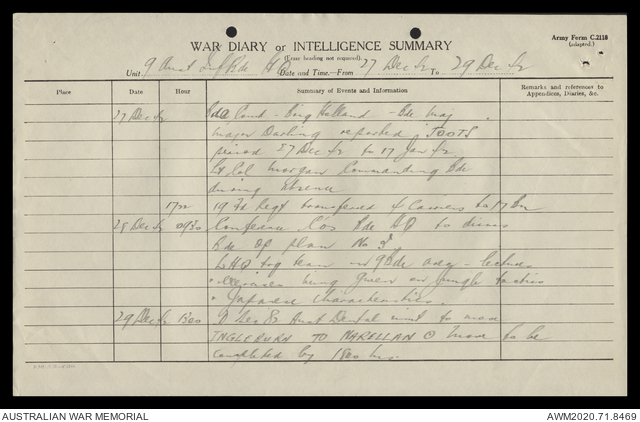 Army Form C.2118
(adapted.)
WAR DIARY or INTELLIGENCE SUMMARY
(Erase heading not required).
Unit 9 Aust Inf Bde HQ Date and Time.—From 27 Dec 42 To 29 Dec 42
Place Date Hour Summary of Events and Information Remarks and references to Appendices, Diaries, &c.
27 Dec 42 Bde Comd - Brig - Bde Maj
Major Darling reported JTOOTS
period 27 Dec 42 to 17 Jan 42
Lt Col Morgan Commanding Bde
during absence
19 Fd Regt transferred to 17 Bn
28 Dec 42 0930 Conference COs Bde HQ to discuss
Bde Op plan No 3
LHQ trg team in 9 Bde area - lectures
being given on jungle tactics
" Japanese Characteristics.
29 Dec 42 Aust Dental unit to move
INGLEBURN TO NARELLAN move to be
completed by 1800 hrs.
AUSTRALIAN WAR MEMORIAL
AWM2020.71.8469